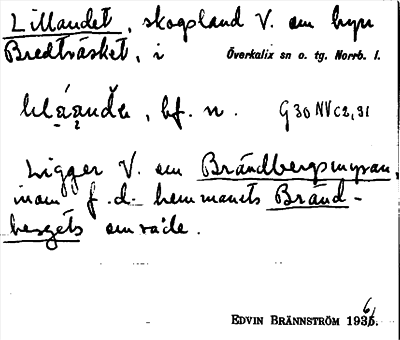 Lillandet, skogsland V. om byn
Bredträsket, i Överkalix sn o. tg. Norrb. l.
bf. n. G 30 NV c2, 31
Ligger V. om Brändbergsmyran,
inom f.d. hemmanets Bränd-
bergets område.
EDVIN BRÄNNSTRÖM 1936.